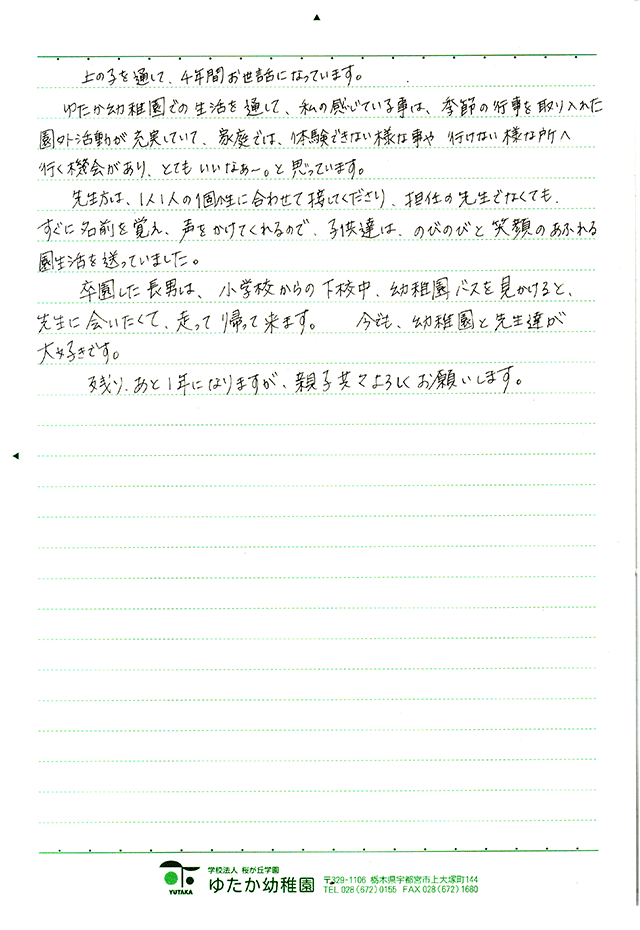 上の子を通して、4年間お世話になっています。
ゆたか幼稚園での生活を通して、私の感じている事は、季節の行事を取り入れた
園外活動が充実していて、家庭では、体験できない様な事や 行けない様な所へ
行く機会があり、とてもいいなぁ〜。と思っています。
先生方は、1人1人の個性に合わせて接してくださり、担任の先生でなくても、
すぐに名前を覚え、声をかけてくれるので、子供達は、のびのびと笑顔のあふれる
園生活を送っていました。
卒園した長男は、小学校からの下校中、幼稚園バスを見かけると、
先生に会いたくて、走って帰って来ます。 今でも、幼稚園と先生達が
大好きです。
残り、あと1年になりますが、親子共々よろしくお願いします。
YUTAKA
学校法人 桜が丘学園
ゆたか幼稚園
〒329-1106 栃木県宇都宮市上大塚町144
TEL 028 (672) 0155 FAX 028 (672) 1680